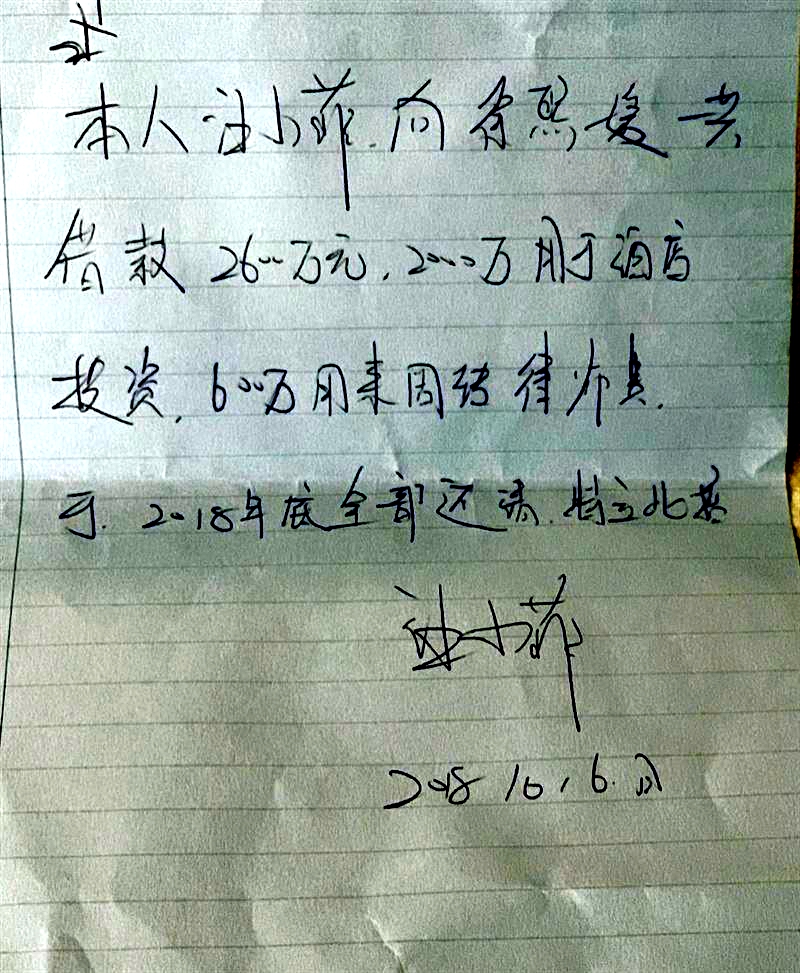 本人汪小菲.向徐熙媛共
借款2600万元.2000万用于酒店
投资.600万用来周转律师费.
于.2018年底全部还清.特立此其
汪小菲
2018 10,6.日